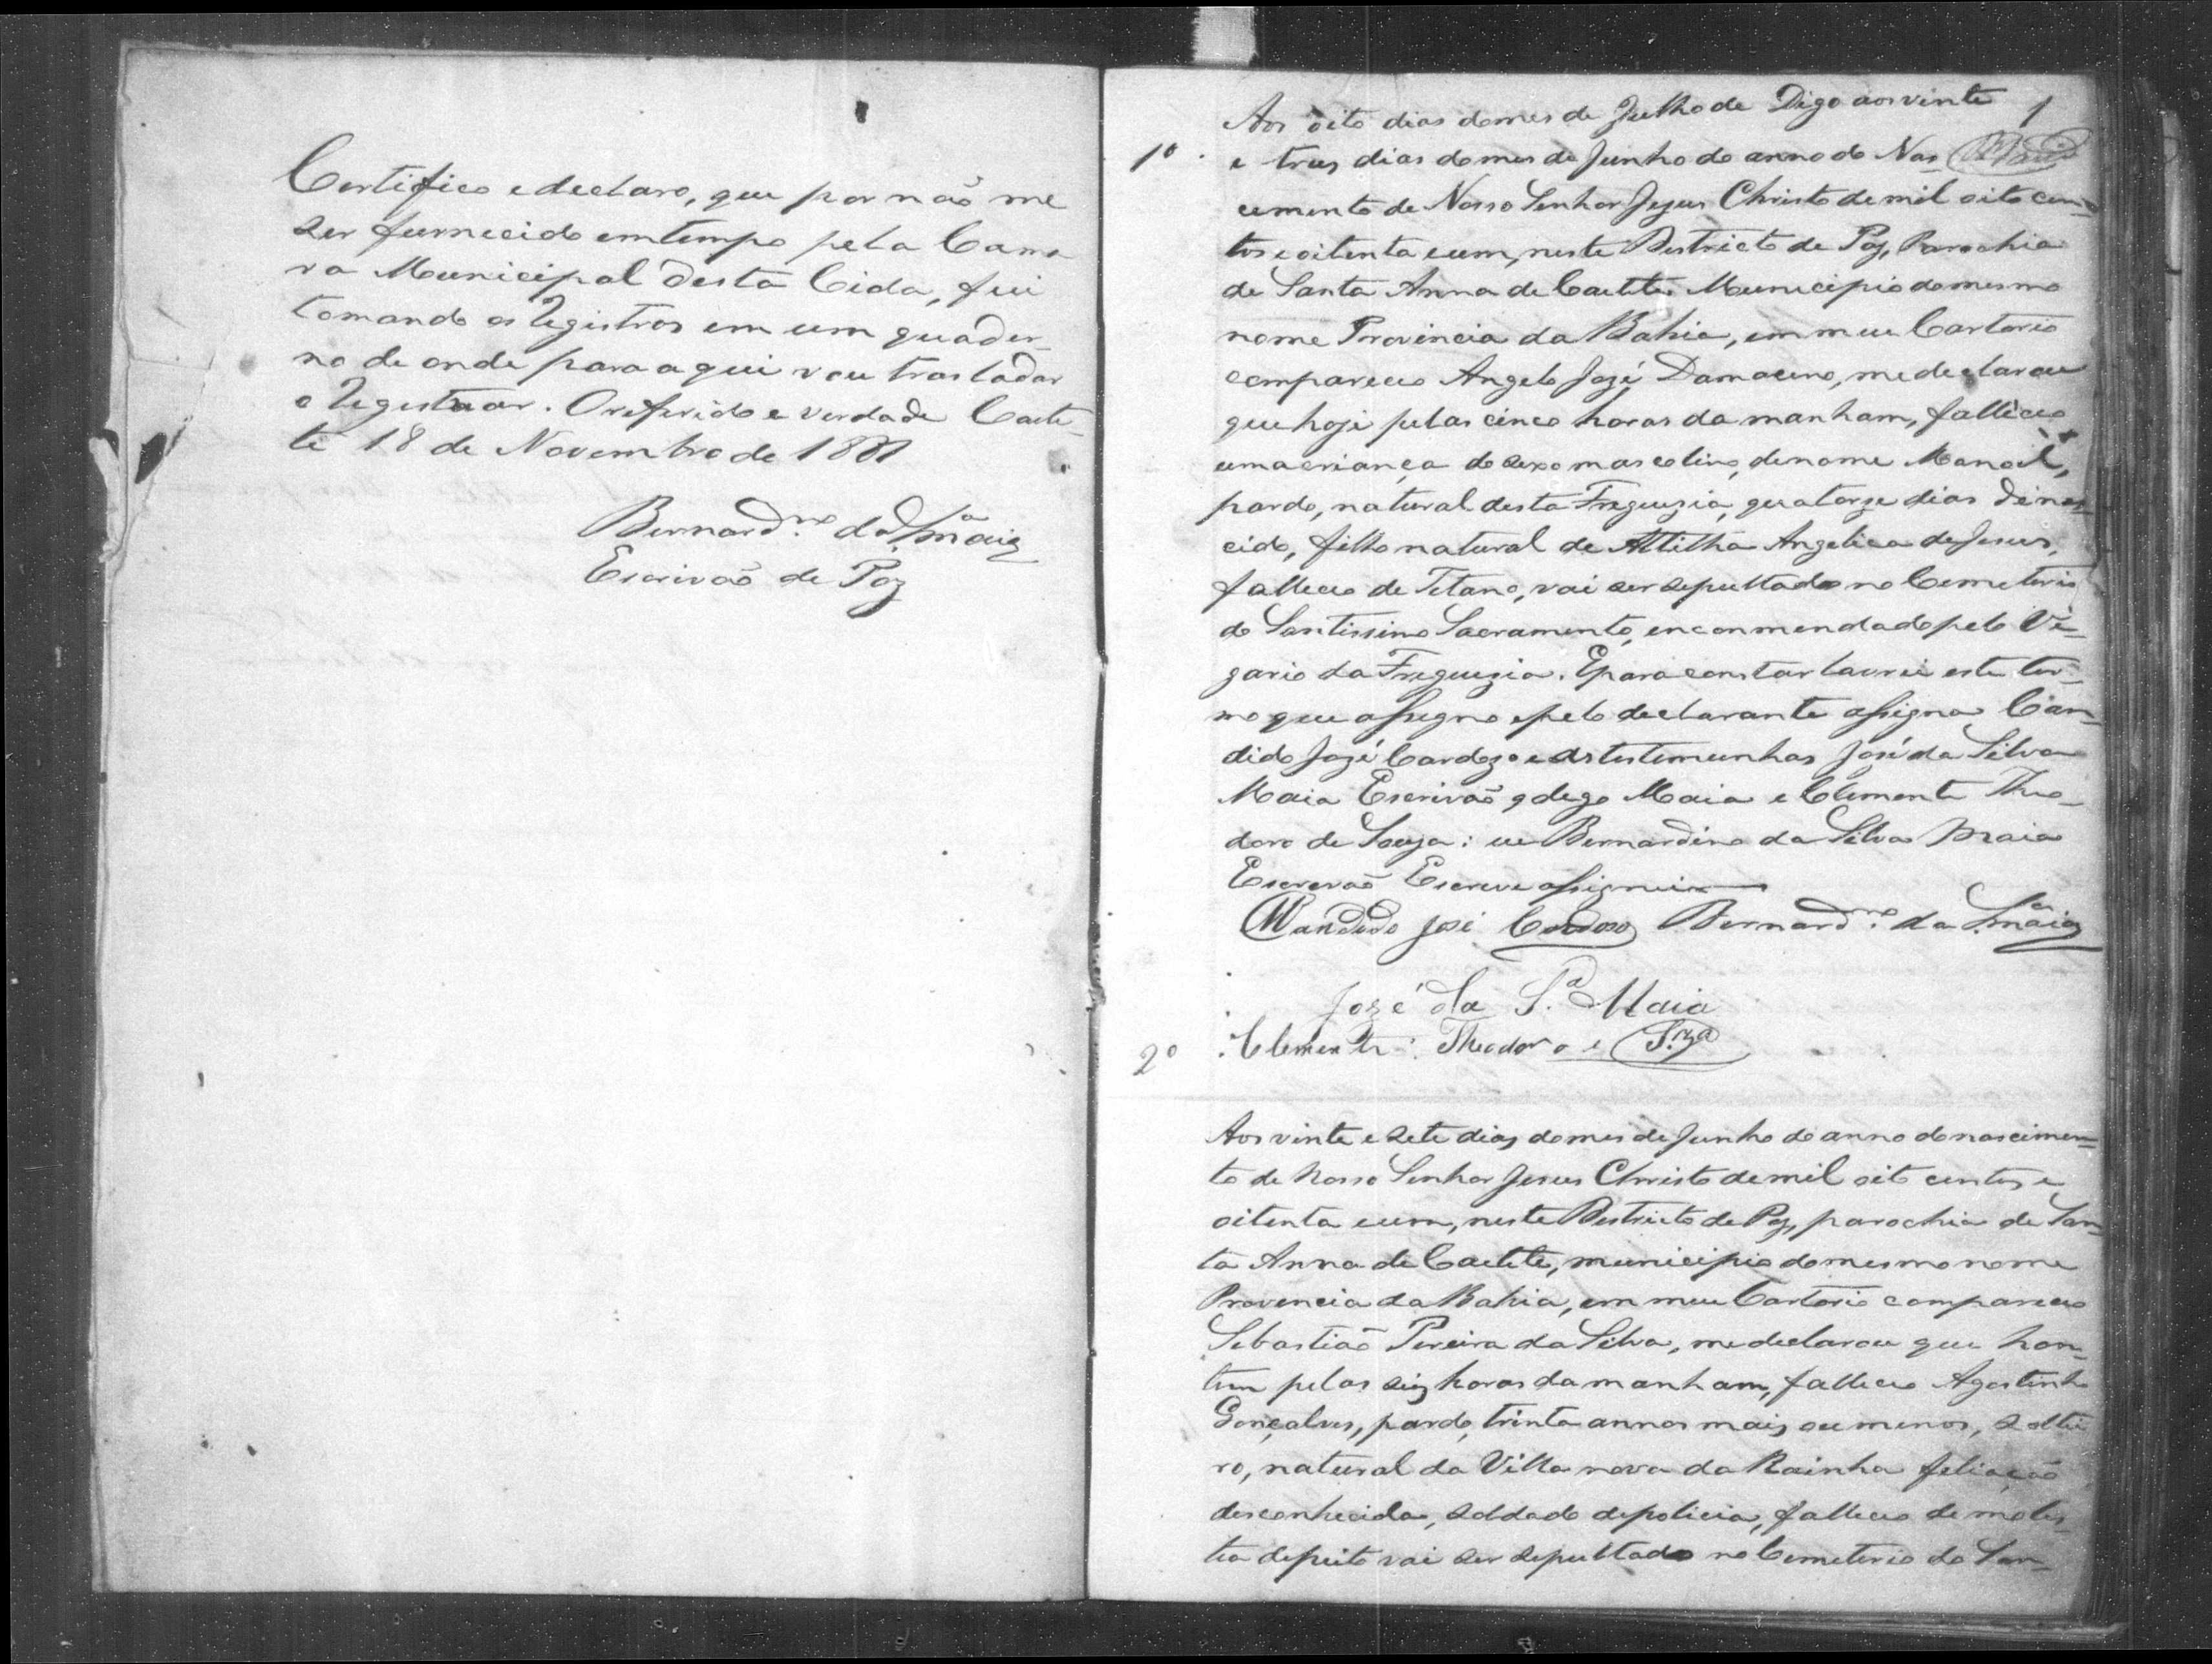 Certifico e declaro, que por não me
ser furnecido em tempo pela Cama
ra Municipal desta Cida, fui
tomando os registros em um quader_
no de onde para aqui vou trasladar
e Registrar. O referido e verdade Caete_
té 18 de Novembro de 1881
Bernard.no da S.a Maia
Escrivão de Paz
1
Aos oito dias do mes de Julho de Digo aos vinte
1º e tres dias do mes de Junho do anno do Nas_
cemento de Nosso Senhor Jezus Christo de mil oito cen_
tos e oitenta e um, neste Destricto de Paz, Parochia
de Santa Anna de Caetite Municipio do mesmo
nome Provincia da Bahia, em meu Cartorio
compareceo Angelo Jozé Damaceno, me declarou
que hoje pelas cinco horas da manham, falleceo
uma criança do sexo mascolino, de nome Manoel,
pardo, natural desta Freguezia, quatorze dias de nas_
cido, filho natural de Attilha Angelica de Jesus,
falleceo de Tetano, vai ser sepultado no Cemeterio
do Santissimo Sacramento, enconmendado pelo Vi_
gario da Freguezia. E para constar lavrei este ter_
mo que assigno e pelo declarante assigna Can_
dido Jozé Cardozo e as testemunhas José da Silva
Maia Escrivão q digo Maia e Clemente Theo_
doro de Souza: eu Bernardino da Silva Maia
Escrevão Escreve assignei
Candido José Cardoso Bernard.no da S.a Maia
José da S.a Maia
Clemente Theodoro e S.za
2º
Aos vinte e sete dias do mes de Junho do anno do nascimen_
to de Nosso Senhor Jesus Christo de mil oito centos e
oitenta e um, neste Destricto de Paz, parochia de San_
ta Anna de Caetite, municipio do mesmo nome
Provencia da Bahia, em meu Cartorio compareceo
Sebastião Pereira da Silva, me declarou que hon_
tem pelas seis horas da manham, falleceo Agostinho
Gonçalves, pardo, trinta annos mais ou menos, soltei
ro, natural da Villa nova da Rainha feliação
desconhecida, soldado de policia, falleceo de moles_
tia de peito vai ser sepultado no Cemeterio do San_